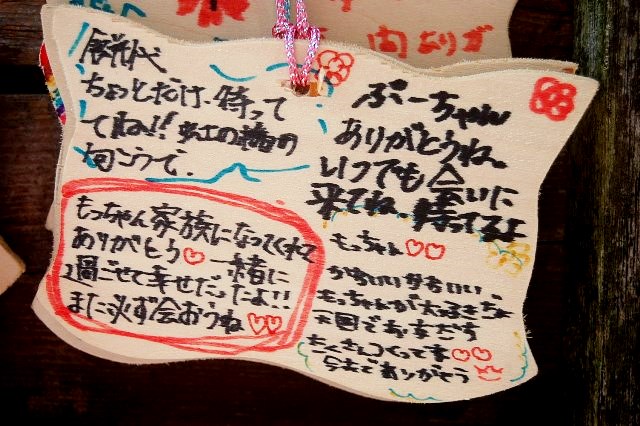 ちょっとだけ、待って
てね!! 虹の橋の
向こうで、
ぷーちゃん
ありがとうね。
いつでも会いに
来てね 待ってるよ
もっちゃん家族になってくれて
ありがとう♡ 一緒に
過ごせて幸せだったよ!!
また必ず会おうね♡♡
もっちゃん♡♡
かわいいかわいい、
もっちゃんが大好きな
天国でおともだち
たくさんつくってネ♡♡
今まであり��とう